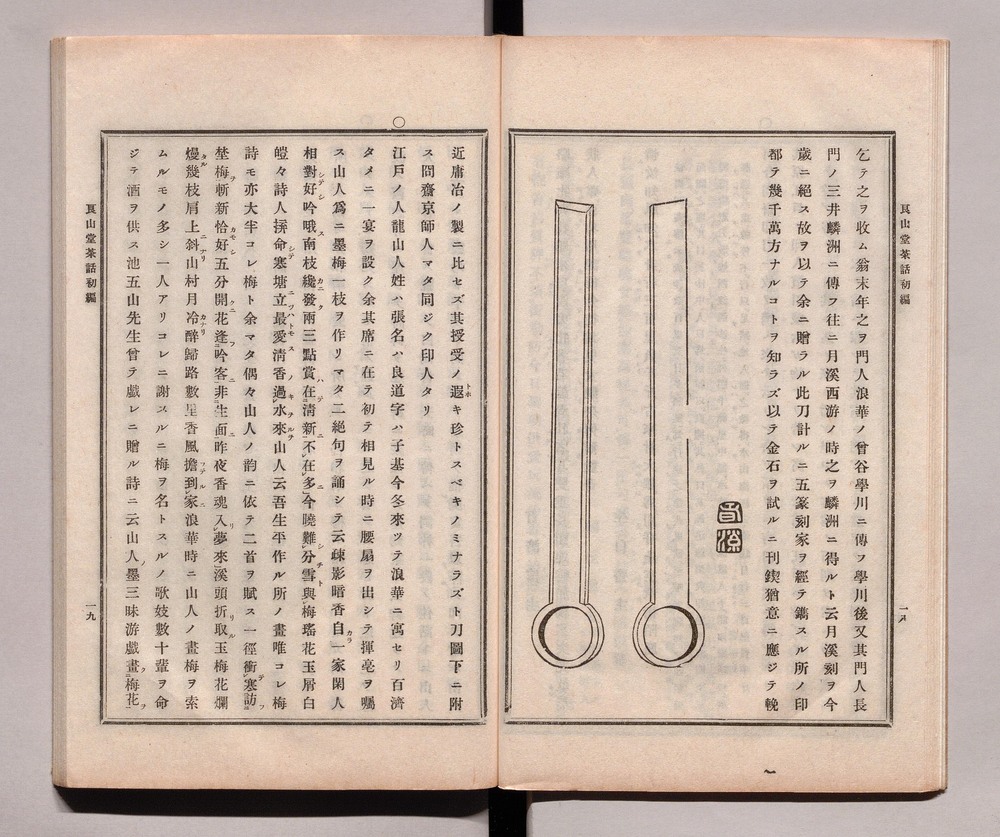 乞テ之ヲ收ム翁末年之ヲ門人浪華ノ曾谷學川ニ傳フ學川後又其門人長
門ノ三井麟洲ニ傳フ往ニ月溪西游ノ時之ヲ麟洲ニ得ルト云月溪刻ヲ今
歲ニ絕ス故ヲ以テ余ニ贈ラル此刀計ルニ五篆刻家ヲ經テ鐫スル所ノ印
都テ幾千萬方ナルコトヲ知ラズ以テ金石ヲ試ルニ刊鍥猶意ニ應ジテ輓
山堂茶話初編
一八
近庸冶ノ製ニ比セズ其授受ノ遐キ珍トスベキノミナラズト刀圖下ニ附
ス問齋京師人マタ同ジク印人タリ
○
江戶ノ人龍山人姓ハ張名ハ良道字ハ子基今冬來ツテ浪華ニ寓セリ百濟
タメニ一宴ヲ設ク余其席ニ在テ初テ相見ル時ニ腰扇ヲ出シテ揮毫ヲ囑
ス山人爲ニ墨梅一枝ヲ作リマタ二絕句ヲ誦シテ云疎影暗香自一家閑人
相對好吟哦南枝纔發兩三點賞在淸新不在多今曉難分雪與梅瑤花玉屑白
皚々詩人拚命寒塘立最愛淸香過水來山人云吾生平作ル所ノ畫唯コレ梅
詩モ亦大半コレ梅ト余マタ偶々山人ノ韵ニ依テ二首ヲ賦ス一徑衝寒訪
埜梅斬新恰好五分開花逢吟客非生面昨夜香魂入夢來溪頭折取玉梅花爛
熳幾枝肩上斜山村月冷醉歸路數里香風擔到家浪華時ニ山人ノ畫梅ヲ索
ムルモノ多シ一人アリコレニ謝スルニ梅ヲ名トスルノ歌妓數十輩ヲ命
ジテ酒ヲ供ス池五山先生曾テ戲レニ贈ル詩ニ云山人墨三昧游戲畫梅花
山堂茶話初編
一九